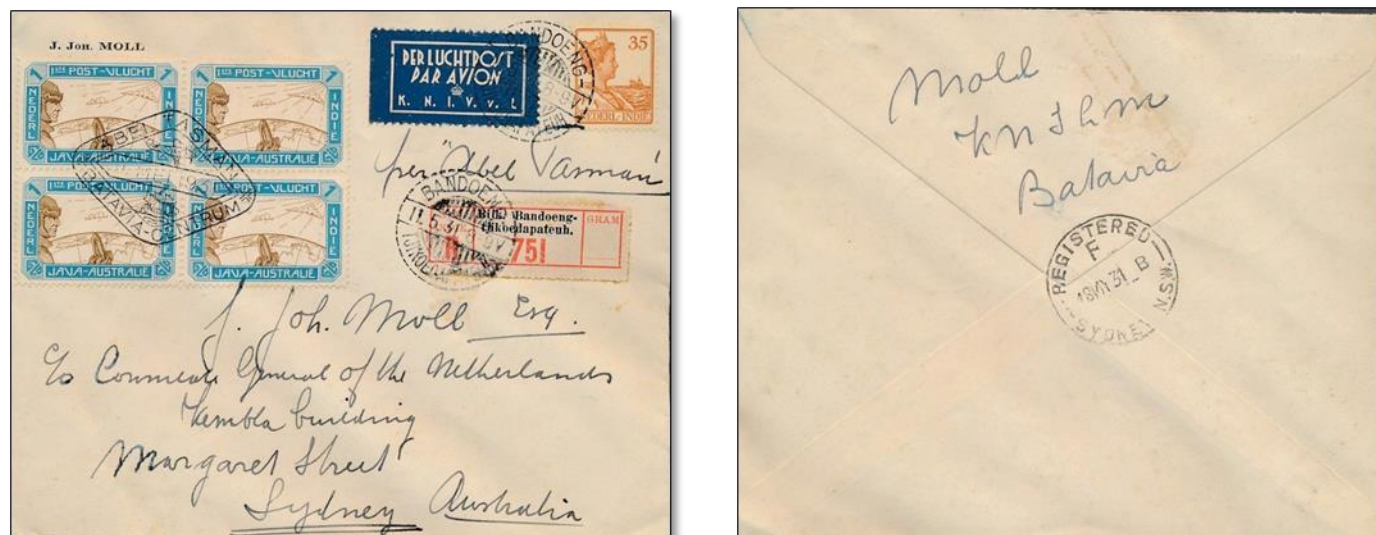 J. Joh. MOLL
1STE POST-VLUCHT
NEDERL
INDIE
JAVA-AUSTRALIE
1STE POST-VLUCHT
NEDERL
INDIE
JAVA-AUSTRALIE
1STE POST-VLUCHT
NEDERL
INDIE
JAVA-AUSTRALIE
1STE POST-VLUCHT
NEDERL
INDIE
JAVA-AUSTRALIE
ABEL TASMAN
BATAVIA-CENTRUM
PER LUCHTPOST
PAR AVION
K. N. I. V. v. L
BANDOENG
35
NEDERL-INDIE
per "Abel Tasman"
BANDOENG
11.5.31
Bandoeng-
Tjikoedapateuh.
751
GRAM
J. Joh. Moll Esq.
c/o Consulate General of the Netherlands
Kembla building
Margaret Street
Sydney Australia
Moll
KNILM
Batavia
REGISTERED
F
18MY31 B
SYDNEY N.S.W.